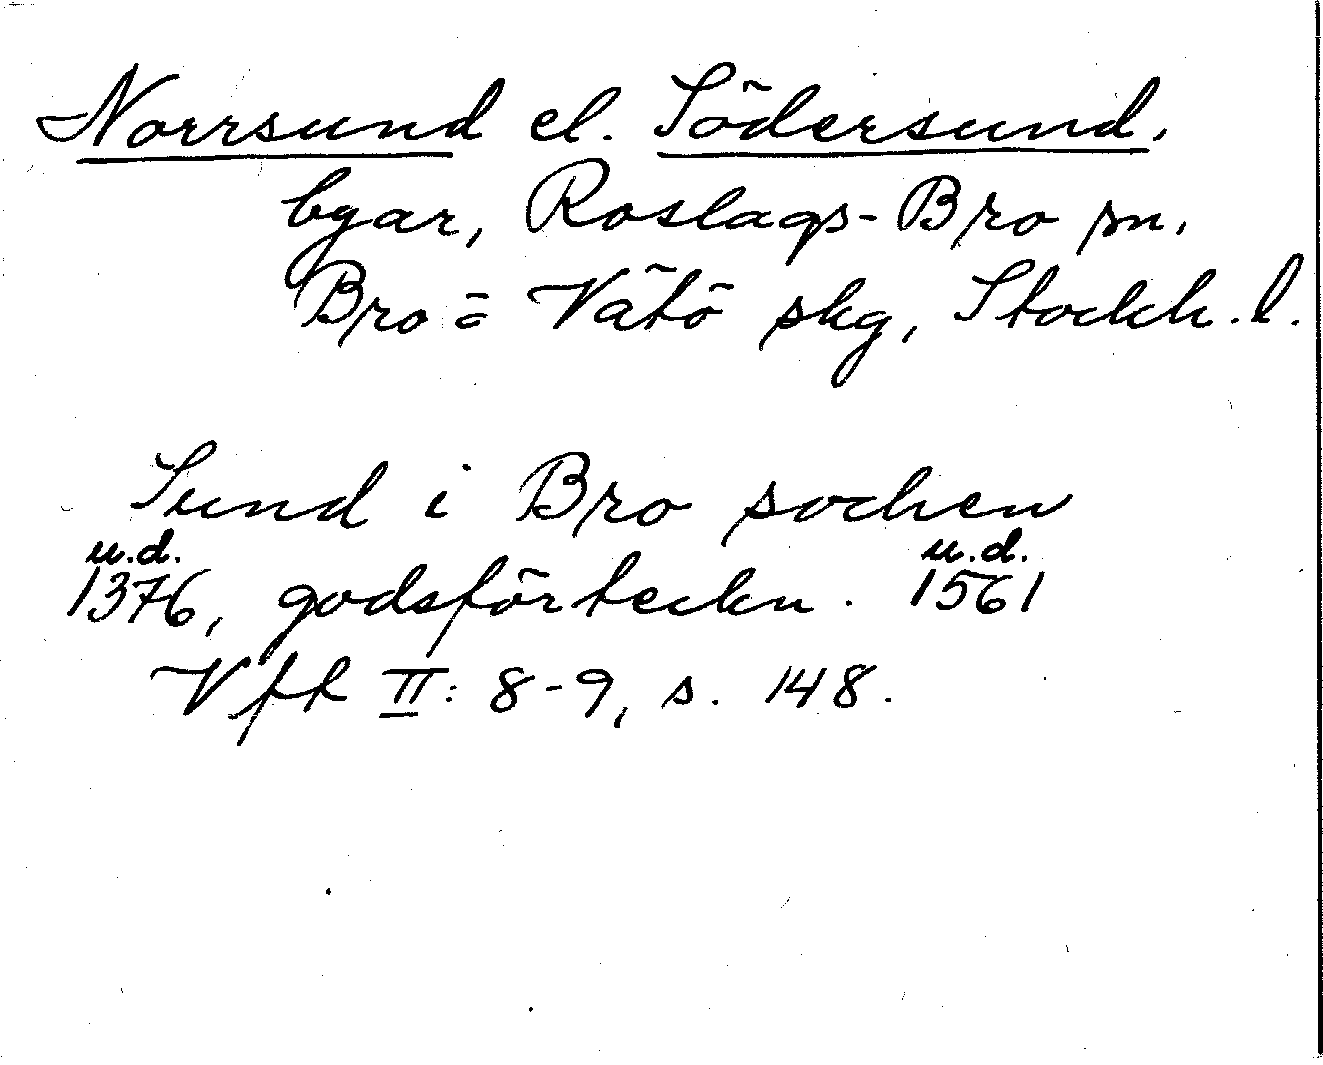 Norrsund el. Södersund,
byar, Roslags-Bro sn,
Bro o Vätö skg, Stockh. l.
Sund i Bro sochen
u.d. u.d.
1376, godsförteckn. 1561
Vfr II: 8-9, s. 148.